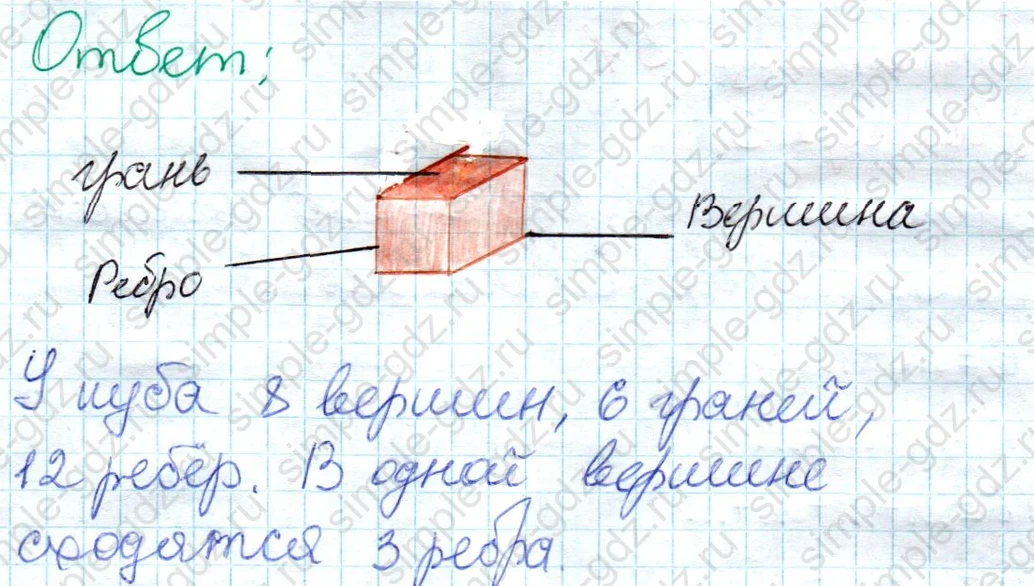 Ответ;
грань
Вершина
Ребро
У куба 8 вершин, 6 граней,
12 ребер. В одной вершине
сходятся 3 ребра.
simple-gdz.ru